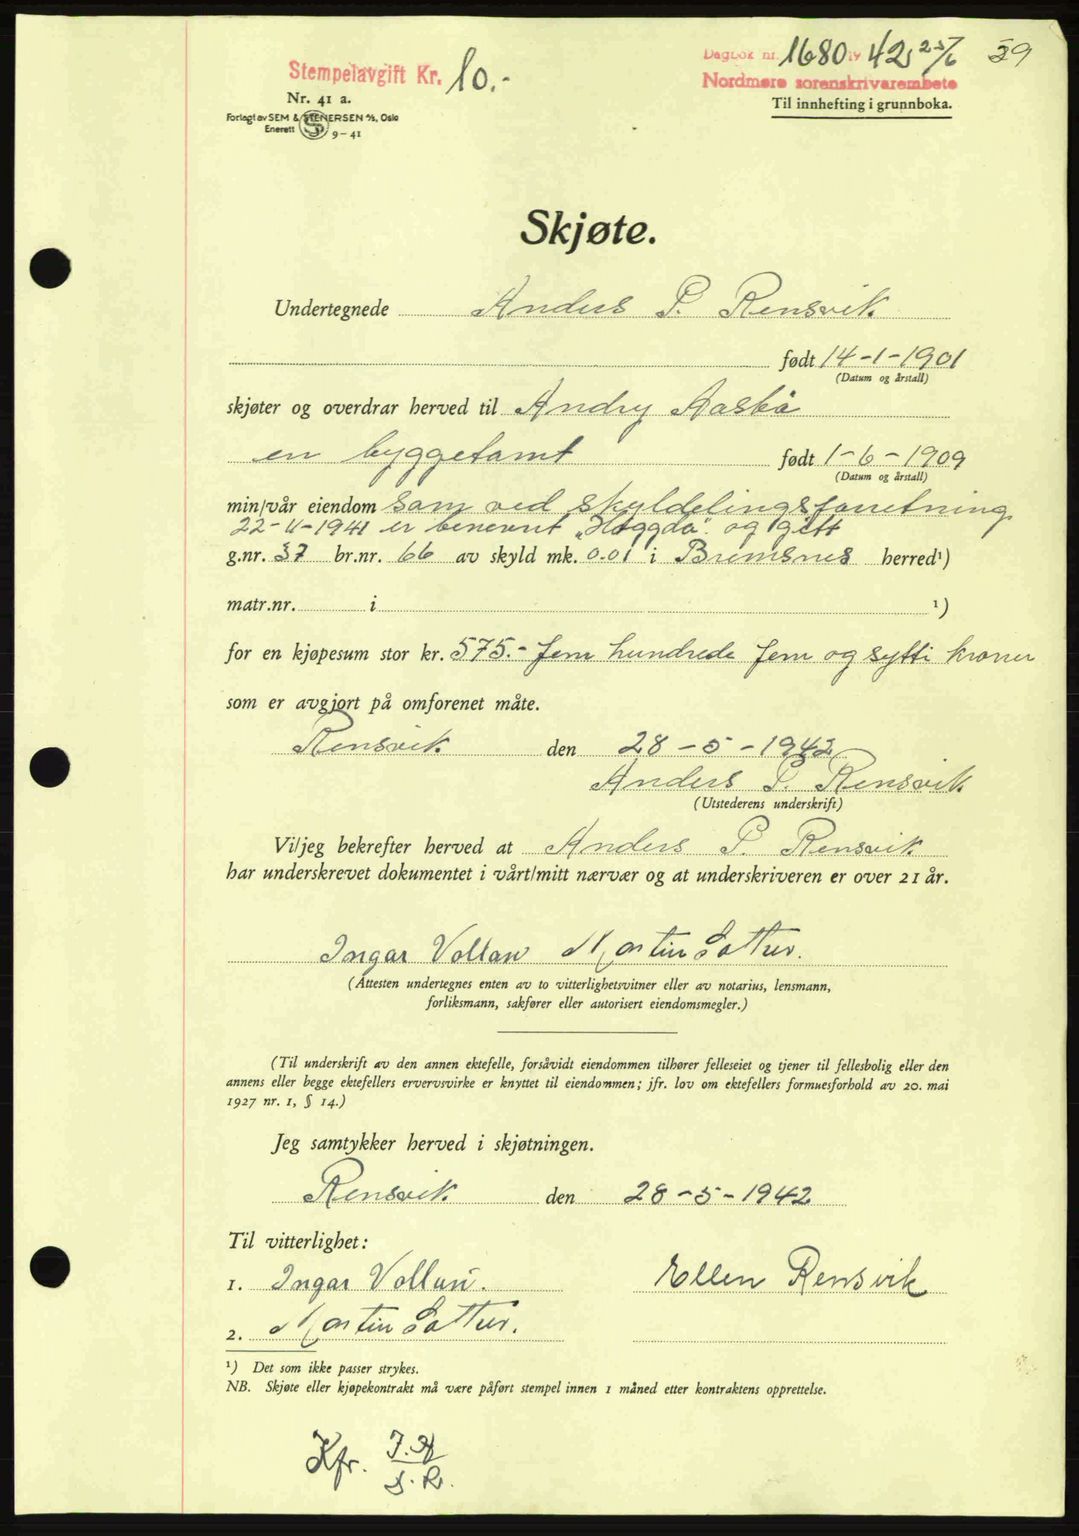 Stempelavgift Kr. 10.-
Dagbok nr. 1680 19 42 25/6 39
Nordmøre sorenskrivarembete
Til innhefting i grunnboka.
Nr. 41 a.
Forlagt av SEM & STENERSEN A/S, Oslo
Enerett 9-41
Skjøte.
Undertegnede Anders P. Rensvik
født 14-1-1901
(Datum og årstall)
skjøter og overdrar herved til Andry Aasbø
en byggetomt født 1-6-1909
(Datum og årstall)
min/vår eiendom som ved skyldelingsforretning
22-11-1941 er benevnt "Høggda". og gitt
g.nr. 37 br.nr. 66 av skyld mk. 0.01 i Bremsnes herred¹)
matr.nr. i ¹)
for en kjøpesum stor kr. 575.- fem hundrede fem og sytti kroner
som er avgjort på omforenet måte.
Rensvik den 28-5-1942
Anders P. Rensvik
(Utstederens underskrift)
Vi/jeg bekrefter herved at Anders P. Rensvik
har underskrevet dokumentet i vårt/mitt nærvær og at underskriveren er over 21 år.
Ingar Vollan Martin
(Attesten undertegnes enten av to vitterlighetsvitner eller av notarius, lensmann,
forliksmann, sakfører eller autorisert eiendomsmegler.)
(Til underskrift av den annen ektefelle, forsåvidt eiendommen tilhører felleseiet og tjener til fellesbolig eller den
annens eller begge ektefellers ervervsvirke er knyttet til eiendommen; jfr. lov om ektefellers formuesforhold av 20. mai
1927 nr. 1, § 14.)
Jeg samtykker herved i skjøtningen.
Rensvik den 28-5-1942
Til vitterlighet:
1. Ingar Vollan. Ellen Rensvik
2. Martin
¹) Det som ikke passer strykes.
NB. Skjøte eller kjøpekontrakt må være påført stempel innen 1 måned etter kontraktens opprettelse.
Kfr.